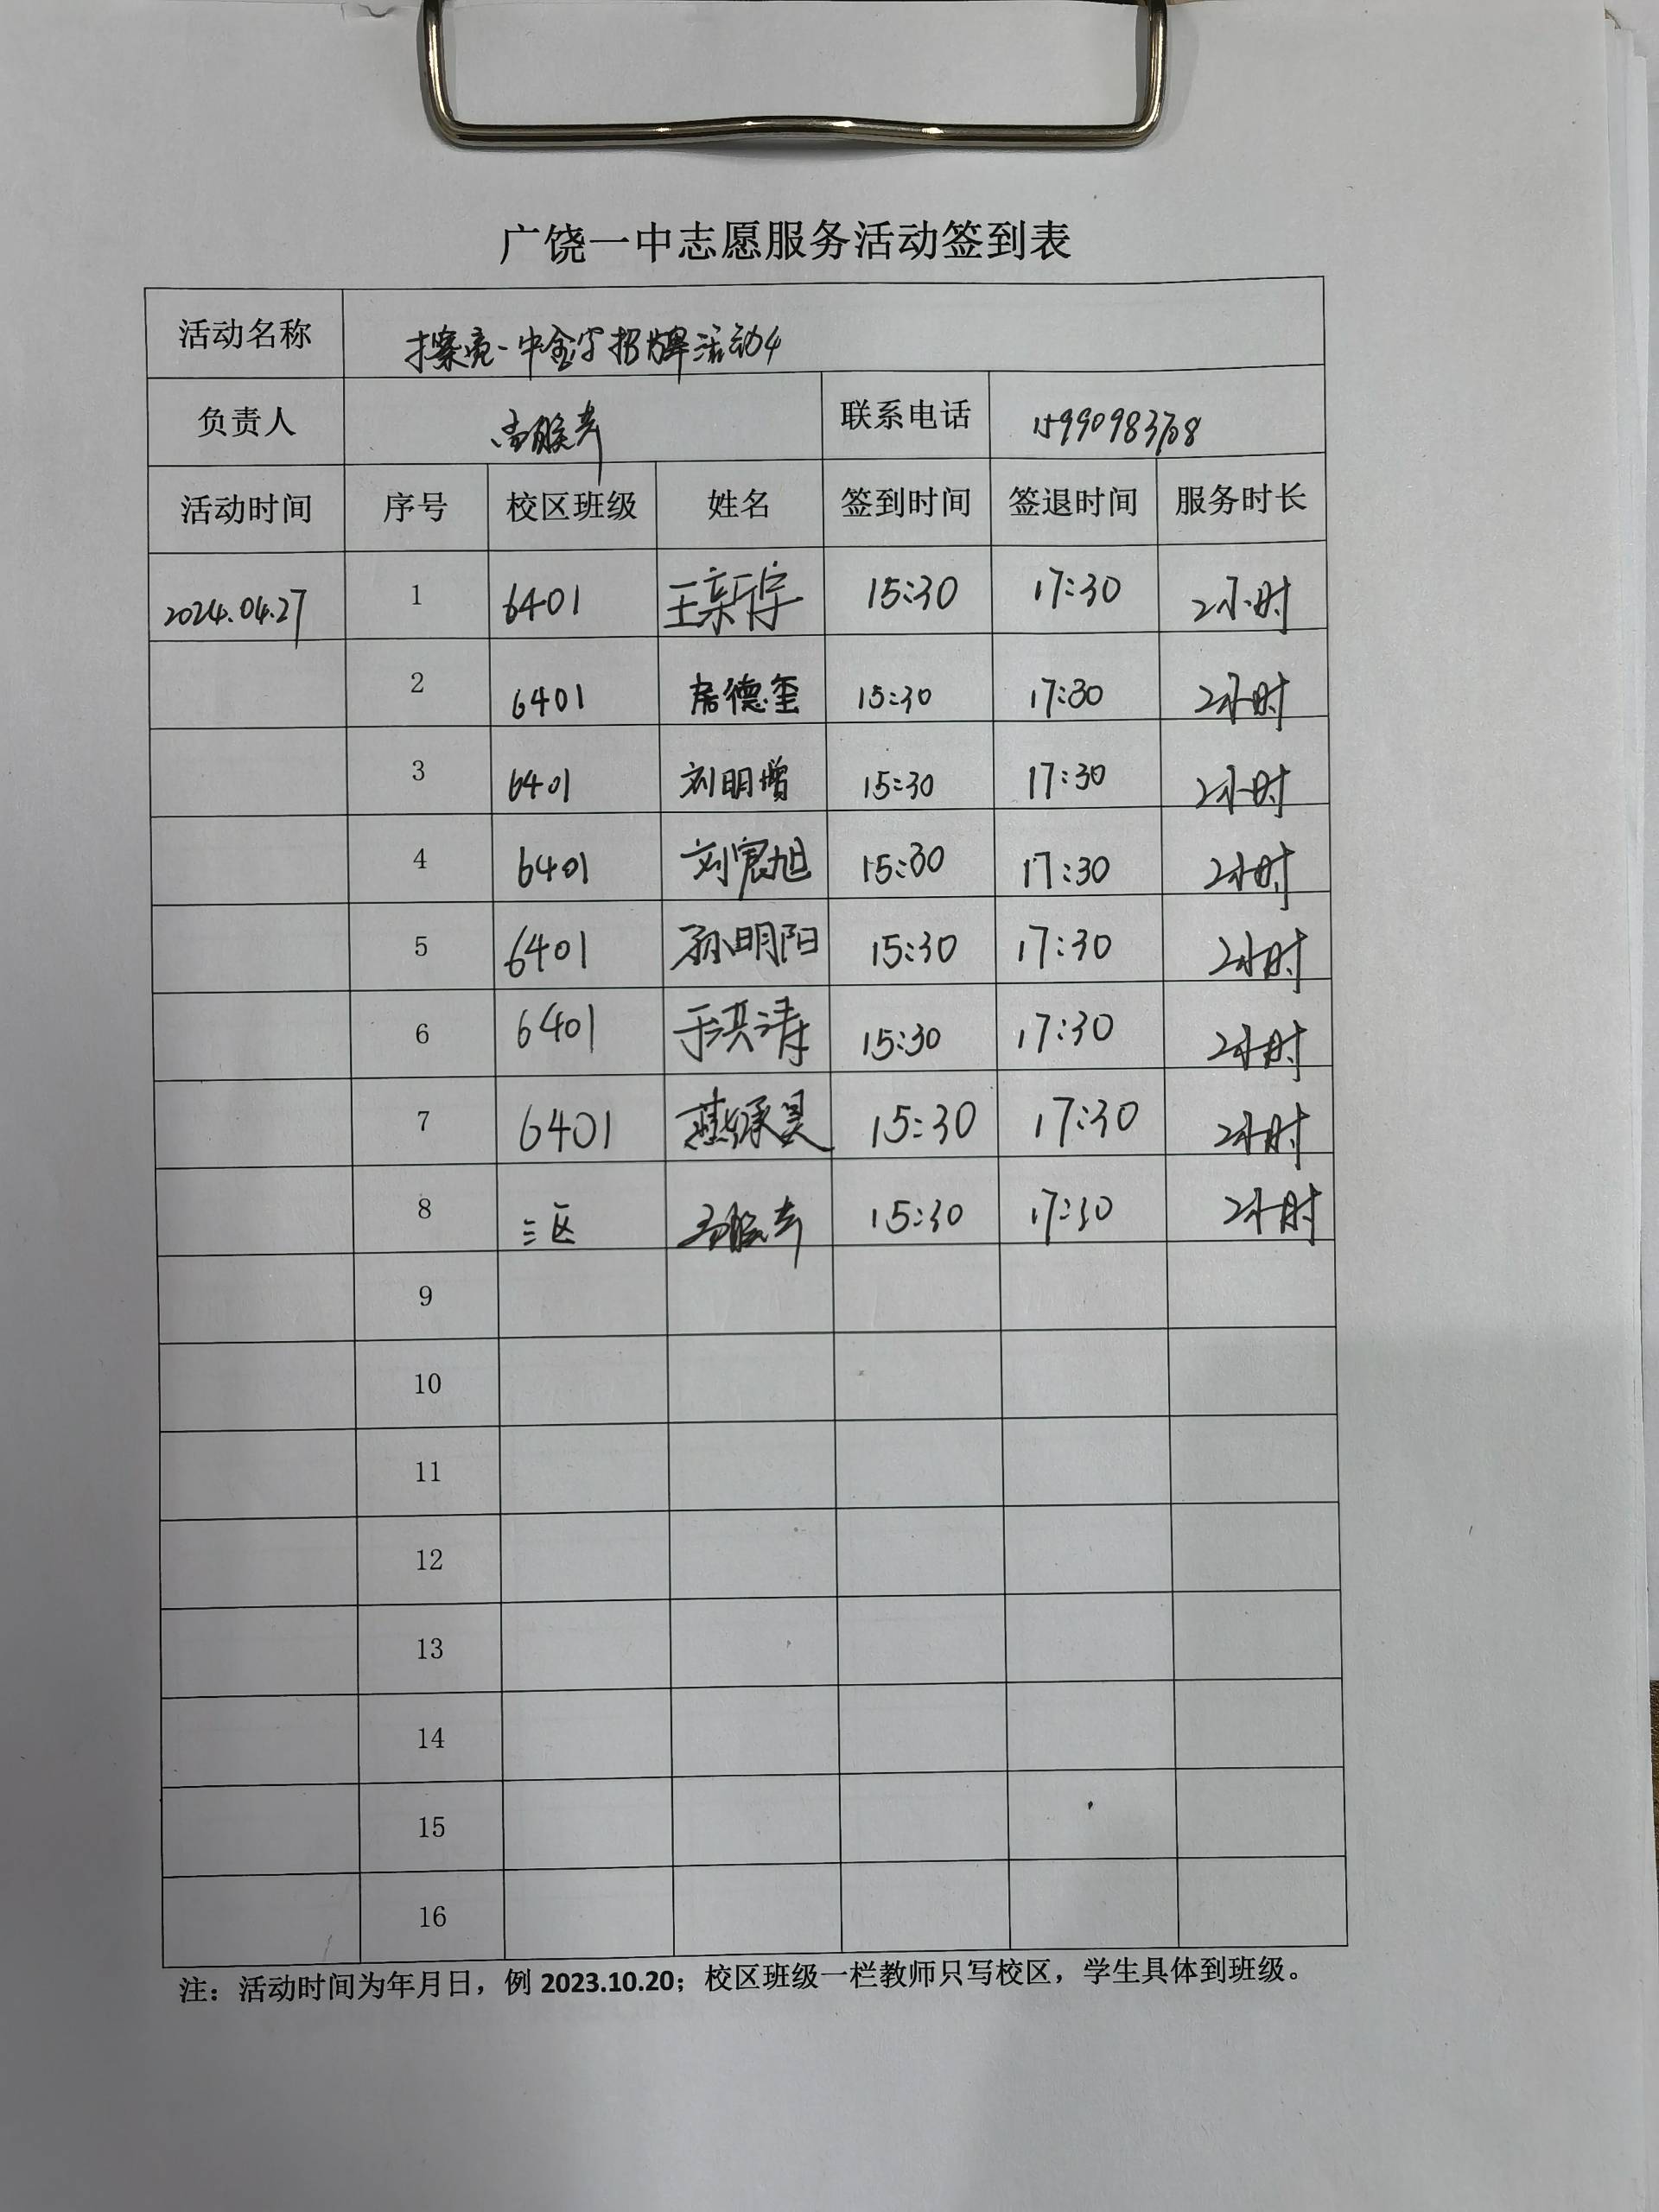 广饶一中志愿服务活动签到表
活动名称 擦亮一中金字招牌活动4
负责人 高胜孝 联系电话 15990983708
活动时间 序号 校区班级 姓名 签到时间 签退时间 服务时长
2024.04.27 1 6401 王新宇 15:30 17:30 2小时
2 6401 德玺 15:30 17:30 2小时
3 6401 刘明增 15:30 17:30 2小时
4 6401 刘宸旭 15:30 17:30 2小时
5 6401 孙明阳 15:30 17:30 2小时
6 6401 于洪涛 15:30 17:30 2小时
7 6401 燕继昊 15:30 17:30 2小时
8 三区 高胜孝 15:30 17:30 2小时
9
10
11
12
13
14
15
16
注：活动时间为年月日，例 2023.10.20；校区班级一栏教师只写校区，学生具体到班级。